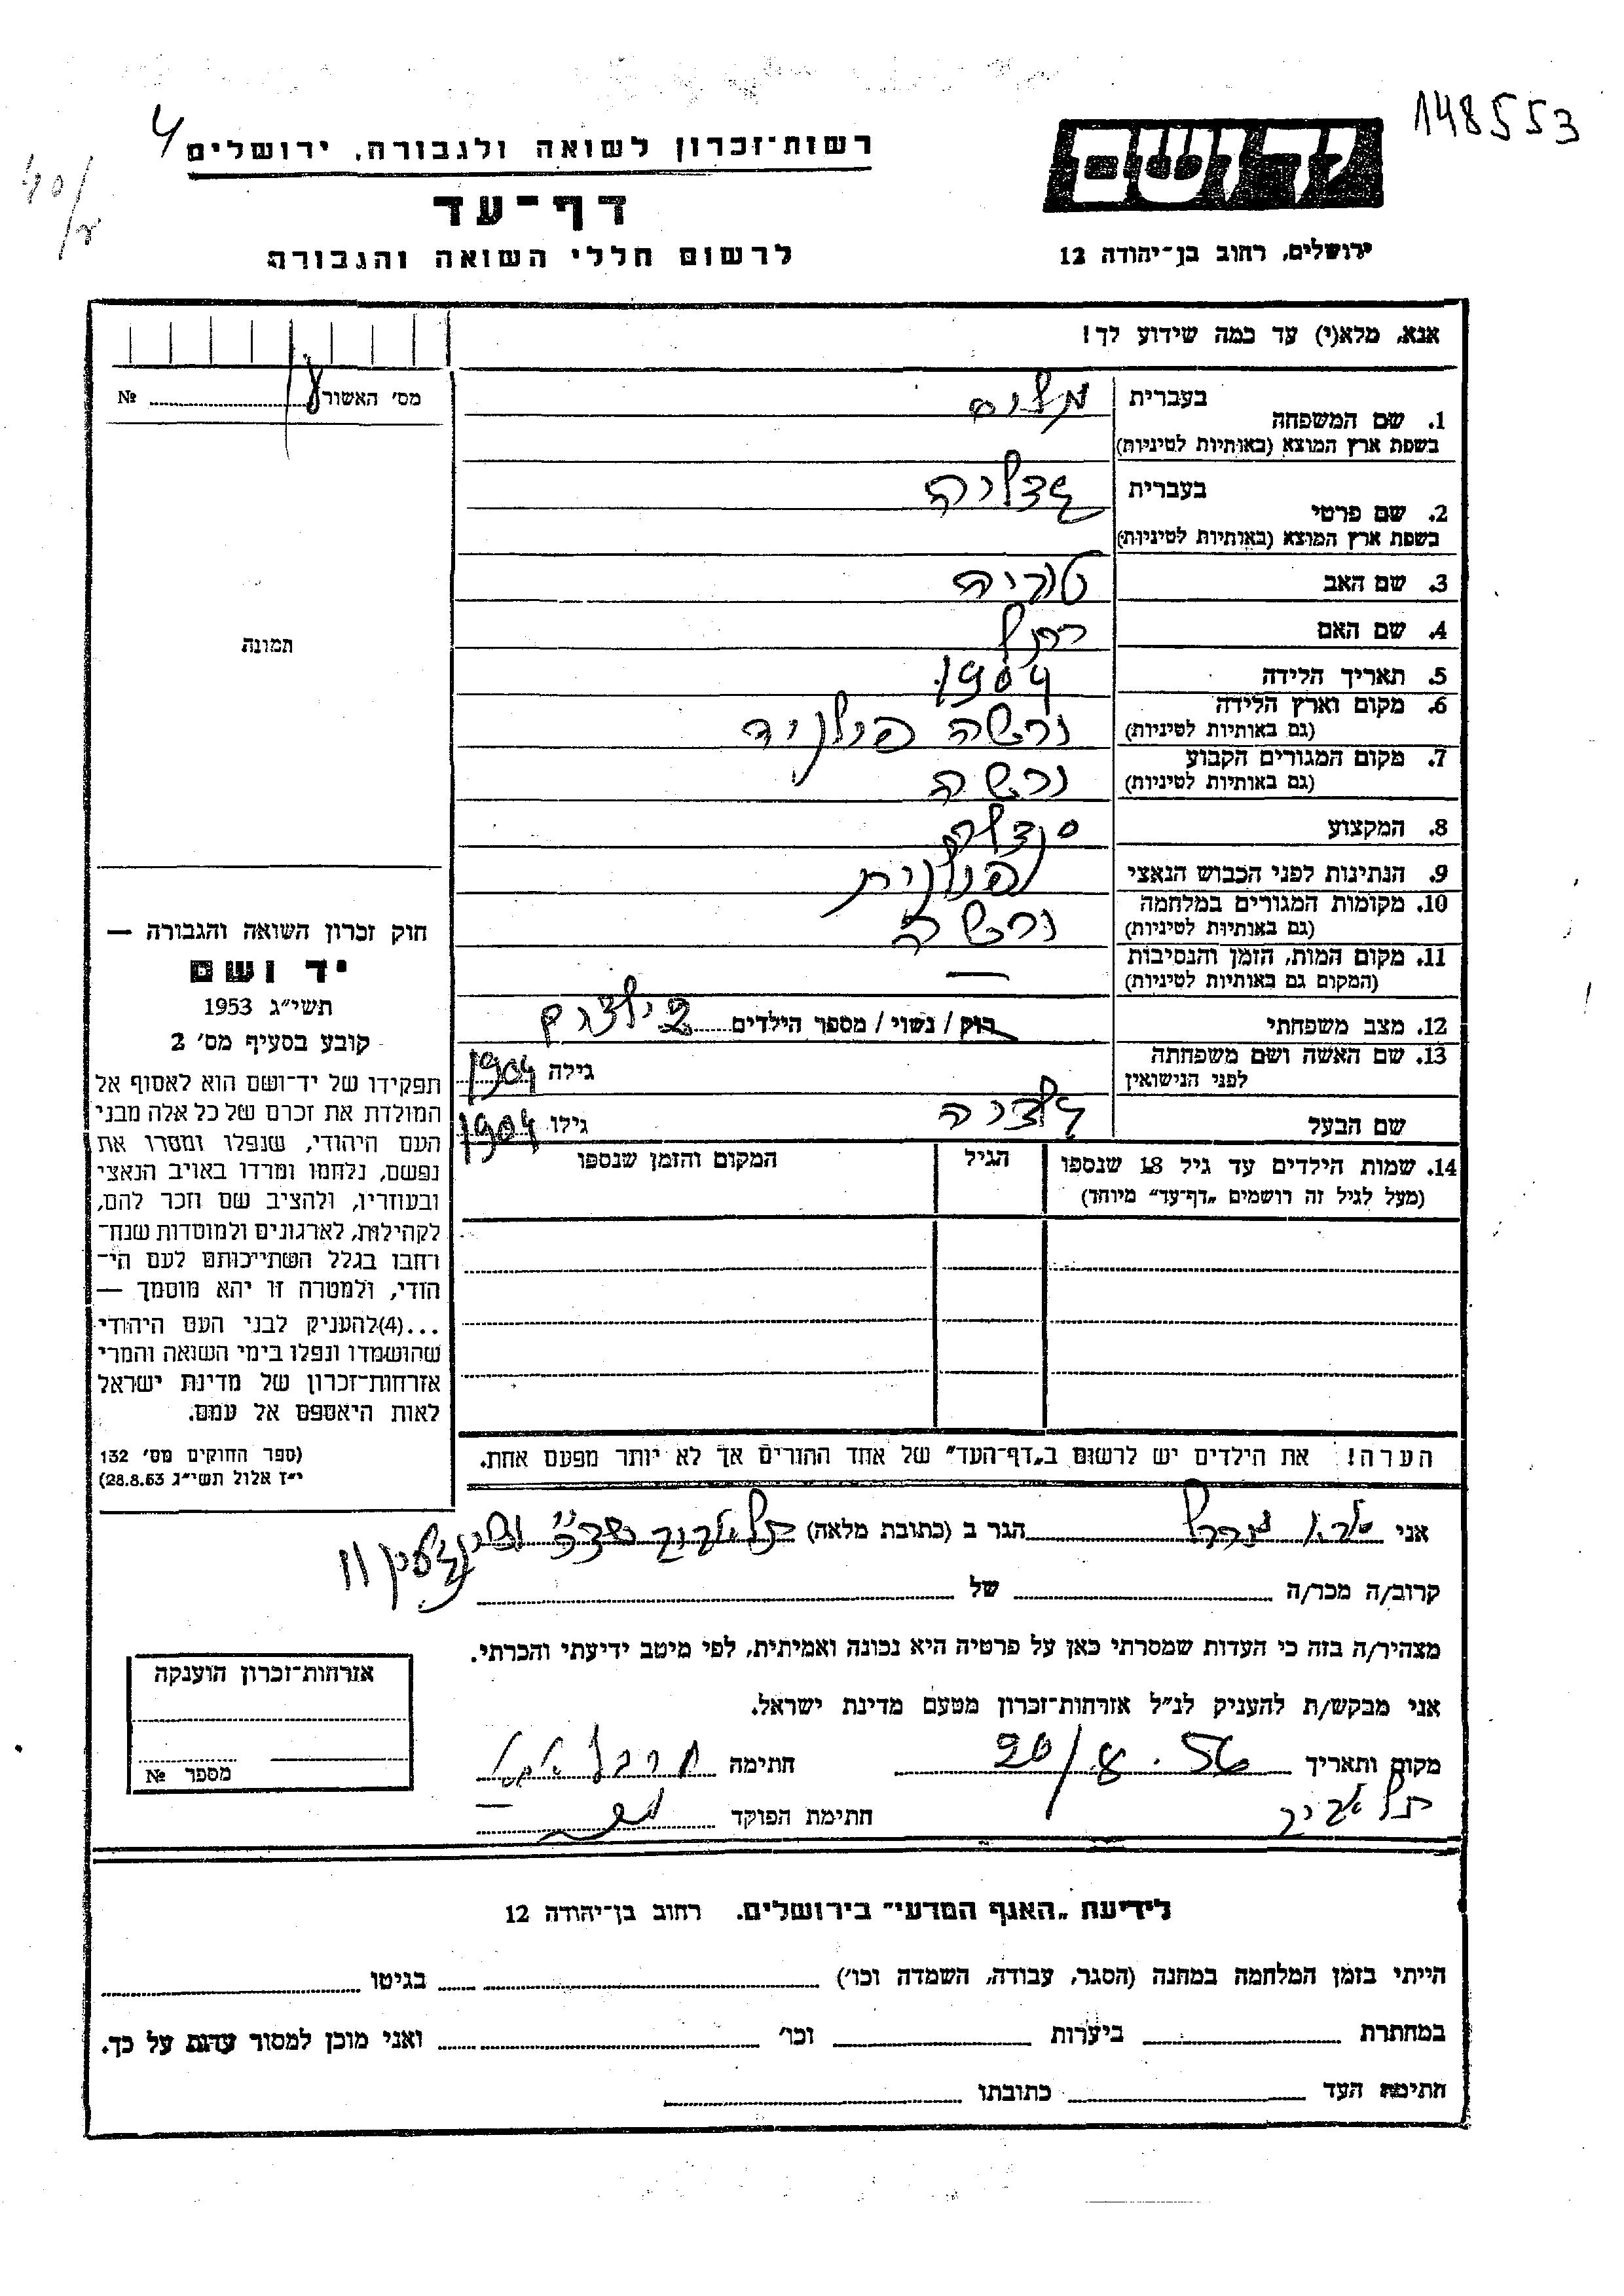 148553
רשות־זכרון לשואה ולגבורה, ירושלים
דף־עד
לרשום חללי השואה והגבורה
יד ושם
ירושלים, רחוב בן־יהודה 12
אנא, מלא(י) עד כמה שידוע לך!
מס׳ האשור №
1. שם המשפחה
בעברית
בשפת ארץ המוצא (באותיות לטיניות)
2. שם פרטי
בעברית גדליה
בשפת ארץ המוצא (באותיות לטיניות)
3. שם האב טוביה
4. שם האם רחל
5. תאריך הלידה 1904
6. מקום וארץ הלידה ורשה פולניד
(גם באותיות לטיניות)
7. מקום המגורים הקבוע ורשה
(גם באותיות לטיניות)
8. המקצוע סנדלר
9. הנתינות לפני הכבוש הנאצי פולנית
10. מקומות המגורים במלחמה ורשה
(גם באותיות לטיניות)
11. מקום המות, הזמן והנסיבות —
(המקום גם באותיות לטיניות)
12. מצב משפחתי רוק / נשוי / מספר הילדים 2 ילדים
13. שם האשה ושם משפחתה גילה 1904
לפני הנישואין
שם הבעל גדליה גילו 1904
14. שמות הילדים עד גיל 18 שנספו הגיל המקום והזמן שנספו
(מעל לגיל זה רושמים „דף־עד״ מיוחד)
הערה! את הילדים יש לרשום ב„דף־העד״ של אחד ההורים אך לא יותר מפעם אחת.
תמונה
חוק זכרון השואה והגבורה —
יד ושם
תשי״ג 1953
קובע בסעיף מס׳ 2
תפקידו של יד־ושם הוא לאסוף אל
המולדת את זכרם של כל אלה מבני
העם היהודי, שנפלו ומסרו את
נפשם, נלחמו ומרדו באויב הנאצי
ובעוזריו, ולהציב שם וזכר להם,
לקהילות, לארגונים ולמוסדות שנח־
רחבו בגלל השתייכותם לעם הי־
הודי, ולמטרה זו יהא מוסמך —
...(4)להעניק לבני העם היהודי
שהושמדו ונפלו בימי השואה והמרי
אזרחות־זכרון של מדינת ישראל
לאות היאספם אל עמם.
(ספר החוקים מס׳ 132
י״ז אלול תשי״ג 28.8.53)
אני הגר ב (כתובת מלאה) תל אביב 11
קרוב/ה מכר/ה של
מצהיר/ה בזה כי העדות שמסרתי כאן על פרטיה היא נכונה ואמיתית, לפי מיטב ידיעתי והכרתי.
אני מבקש/ת להעניק לנ״ל אזרחות־זכרון מטעם מדינת ישראל.
מקום ותאריך 20/8.56 חתימה
תל אביב חתימת הפוקד
אזרחות־זכרון הוענקה
מספר №
לידיעת „האגף המדעי״ בירושלים. רחוב בן־יהודה 12
הייתי בזמן המלחמה במחנה (הסגר, עבודה, השמדה וכו׳) בגיטו
במחתרת ביערות וכו׳ ואני מוכן למסור עדות על כך.
חתימת העד כתובתו